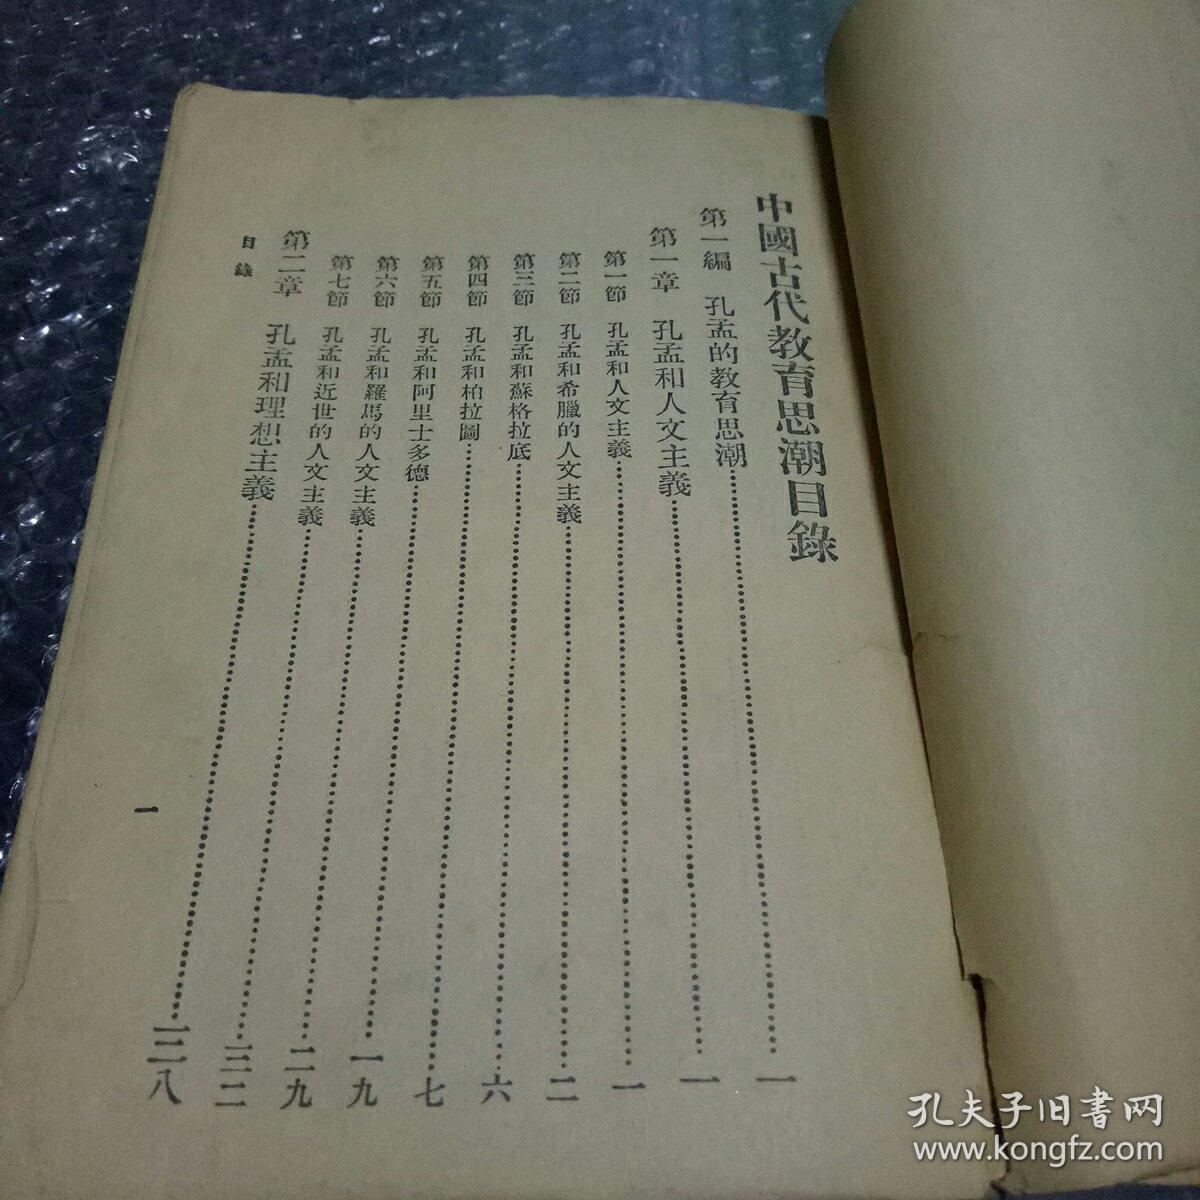 中國古代教育思潮目錄
第一編　孔孟的教育思潮……一
第一章　孔孟和人文主義……一
第一節　孔孟和人文主義……一
第二節　孔孟和希臘的人文主義……二
第三節　孔孟和蘇格拉底……六
第四節　孔孟和柏拉圖……七
第五節　孔孟和阿里士多德……一九
第六節　孔孟和羅馬的人文主義……二九
第七節　孔孟和近世的人文主義……三二
第二章　孔孟和理想主義……三八
目錄
一
孔夫子旧書网
www.kongfz.com